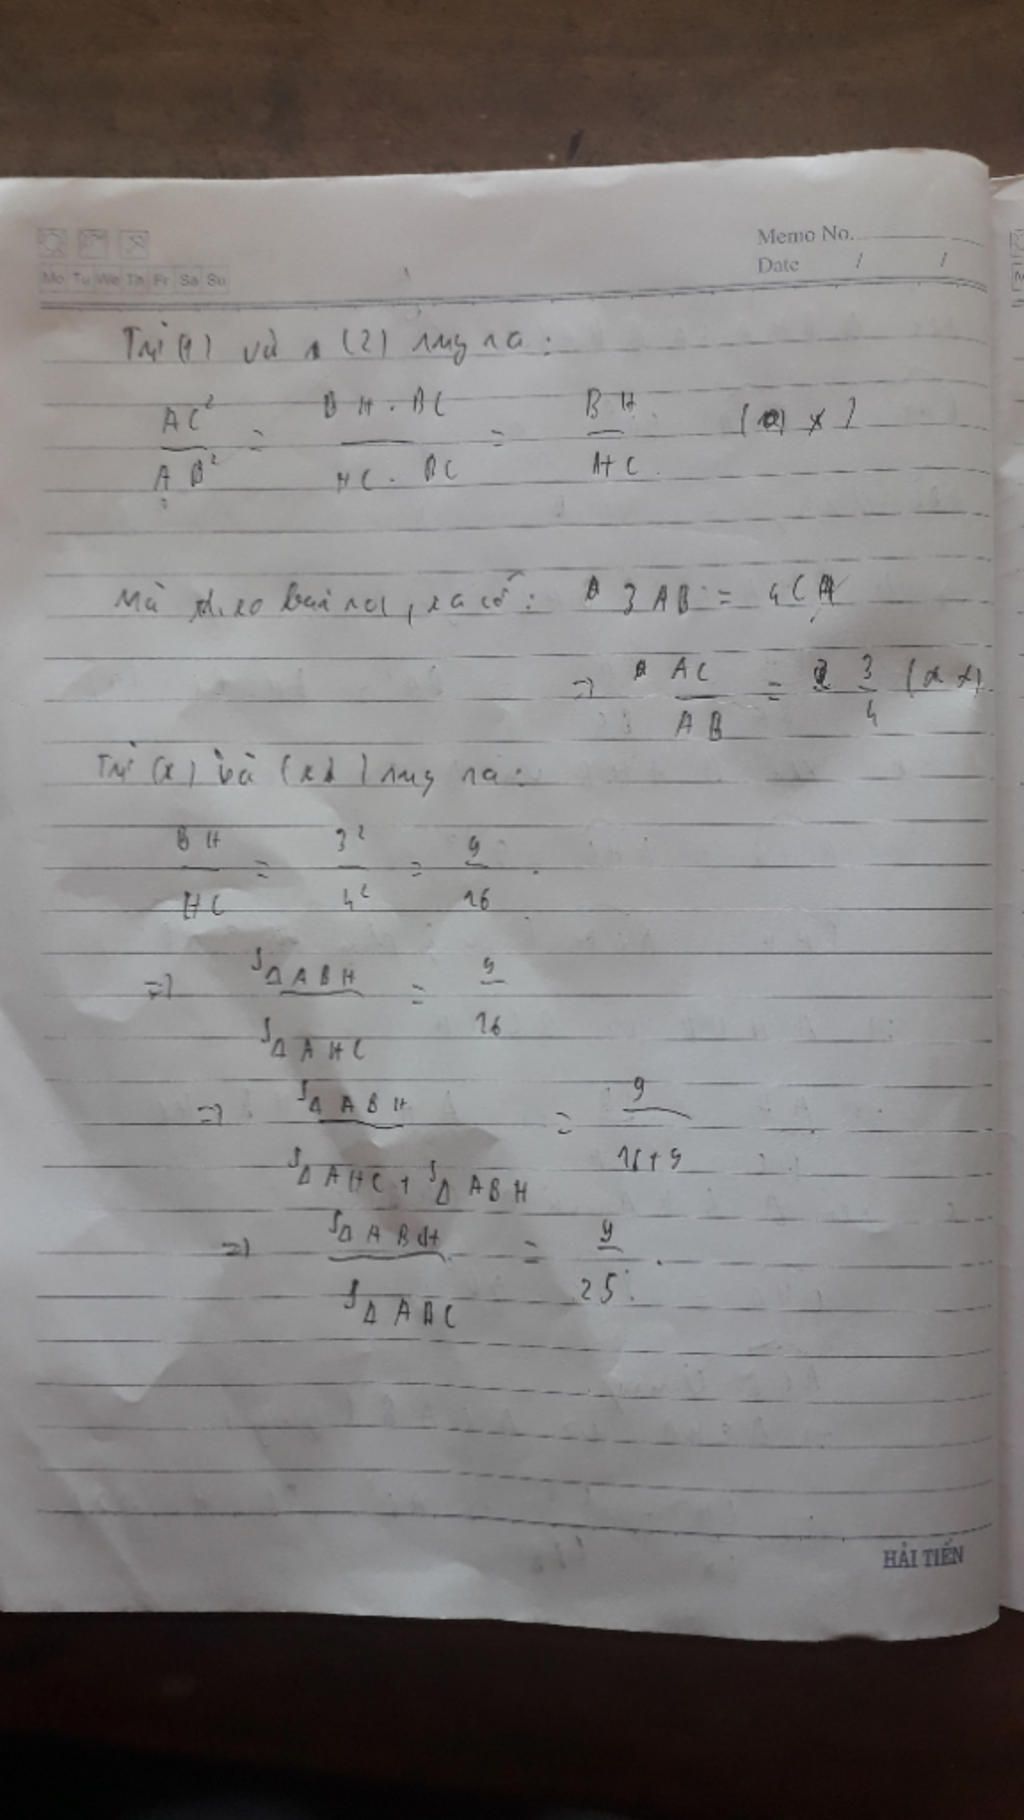 Memo No.
Mo Tu We Th Fr Sa Su
Date / /
Từ (1) và (2) suy ra:
AC² / AB² = BH . BC / HC . BC = BH / HC (*)
Mà theo bài ra, ta có: 3AB = 4CA
=> AC / AB = 3 / 4 (**)
Từ (*) và (**) suy ra:
BH / HC = 3² / 4² = 9 / 16 .
=> SΔABH / SΔAHC = 9 / 16
=> SΔABH / SΔAHC + SΔABH = 9 / 16+9
=> SΔABH / SΔABC = 9 / 25 .
HẢI TIẾN